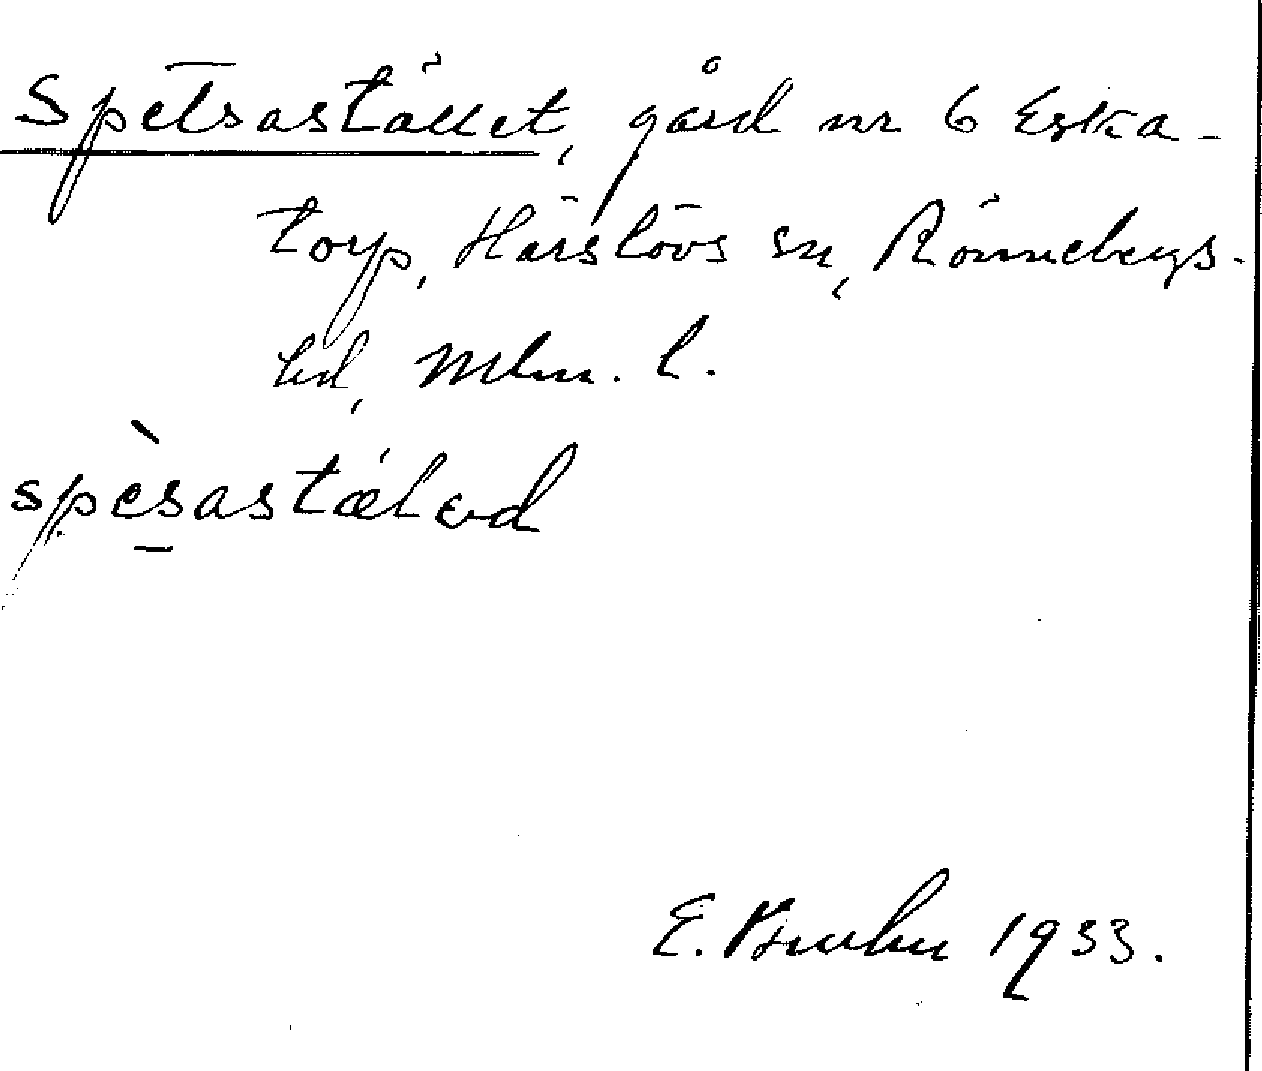 Spetsastället, gård nr 6 Eska-
torp, Härslövs sn, Rönnebergs-
hd, Mlm. l.
spèsastælәd
E. Bruhn 1933.